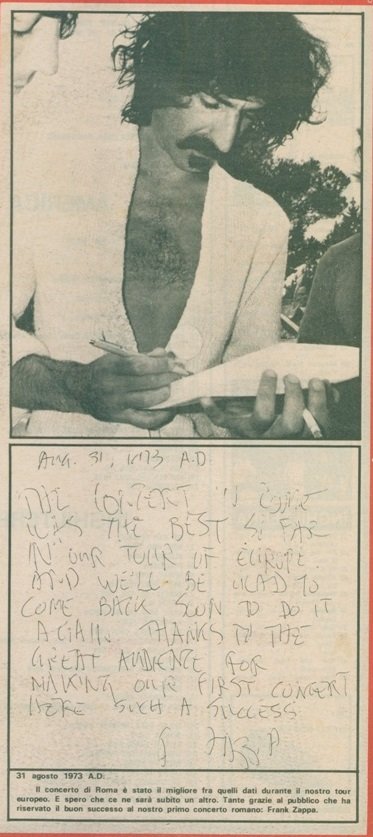 AUG. 31, 1973 A.D.
THE CONCERT IN ROME
WAS THE BEST SO FAR
IN OUR TOUR OF EUROPE.
AND WE'LL BE GLAD TO
COME BACK SOON TO DO IT
AGAIN. THANKS TO THE
GREAT AUDIENCE FOR
MAKING OUR FIRST CONCERT
HERE SUCH A SUCCESS
F Zappa
31 agosto 1973 A.D.
Il concerto di Roma è stato il migliore fra quelli dati durante il nostro tour
europeo. E spero che ce ne sarà subito un altro. Tante grazie al pubblico che ha
riservato il buon successo al nostro primo concerto romano: Frank Zappa.